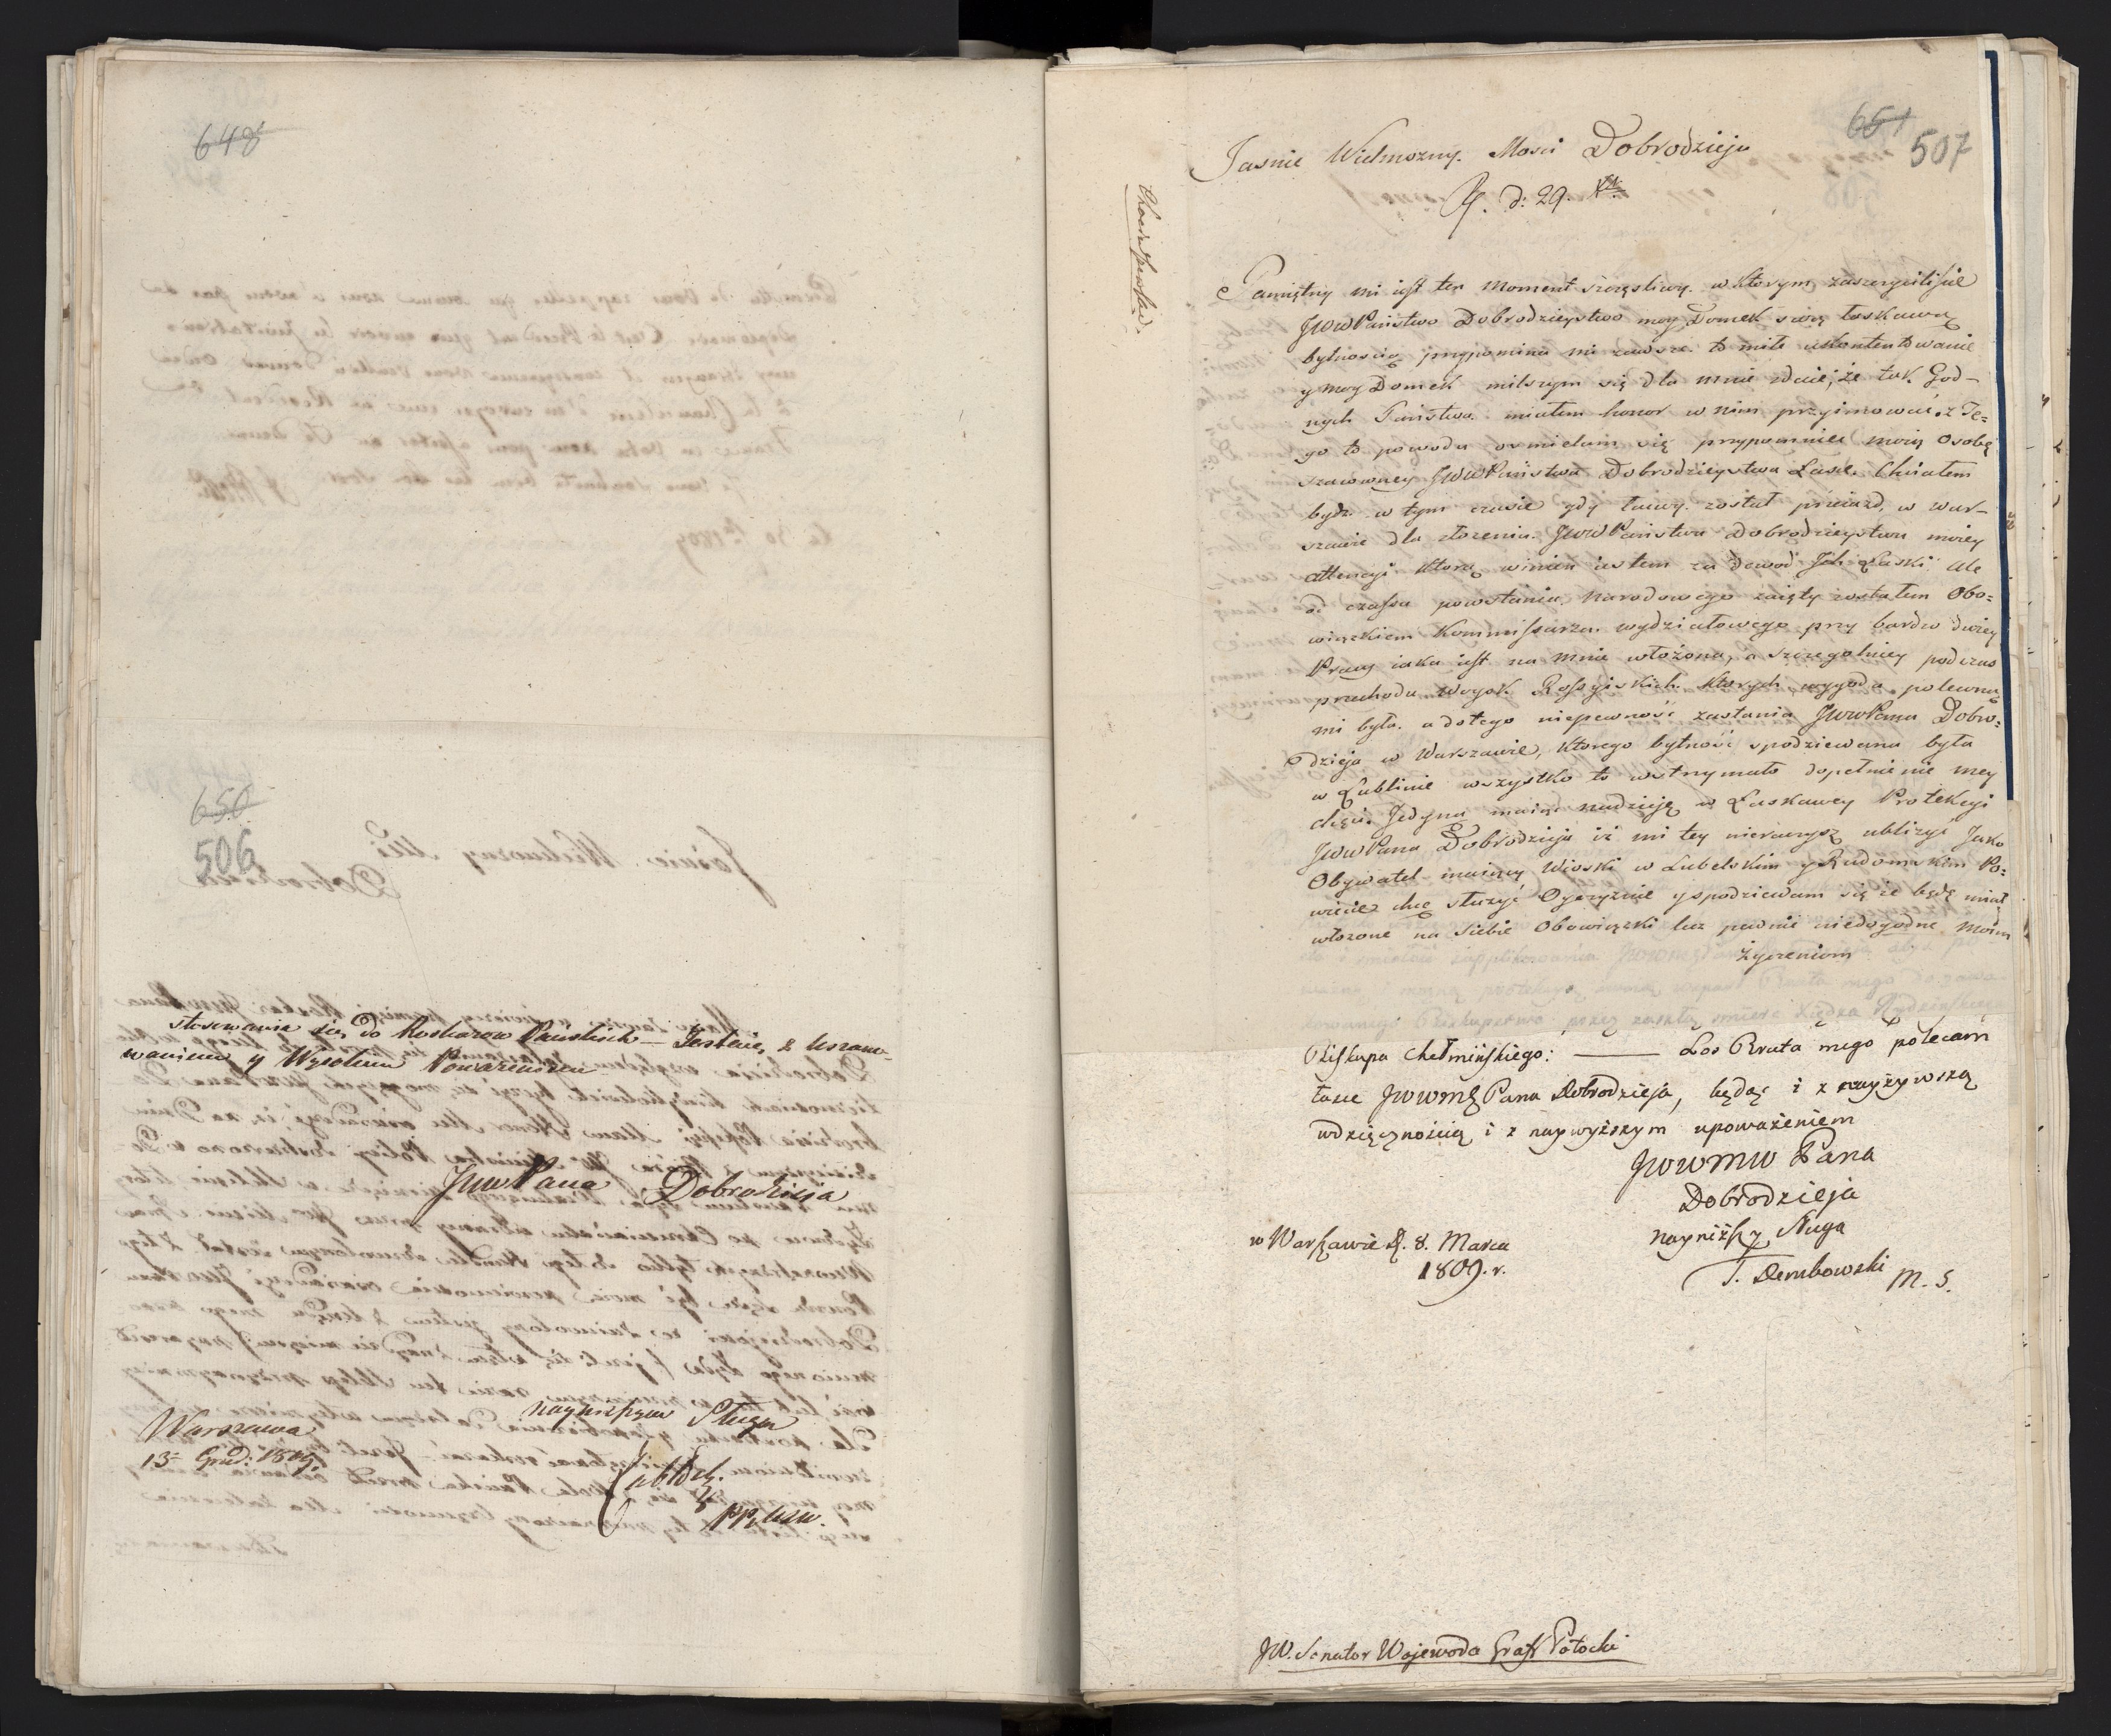 648
650
506
stosowania się do Roskazow Pańskich — Jestem z Uszano-
waniem y Wysokim Poważeniem
JWW Pana Dobrodzieja
nayniższym Sługą
Warszawa
13 Grud: 1809.
651
507
Jasnie Wielmozny Mosci Dobrodzieju
R. d: 29. Xbr
Pamiętny mi jest ten moment szczęsliwy w ktorym zaszczycilisie
JWW Państwo Dobrodzieystwo moy Domek swią łaskawą
bytnoscią przypomina mi zawsze to miłe ukontentowanie
y moy Domek milszym się dla mnie zdaie, że tak God-
nych Państwa miałem honor w nim przyimować. z Te=
go to powodu osmielam się przypomniec moią Osobę
szacowney JWW Państwa Dobrodzieystwa Łasce. Chciałem
bydz w tym czasie gdy łatwy został przeiazd, w War-
szawie dla złożenia JWW Państwu Dobrodzieystwu moiey
attencyi ktorą winien iestem za dowod Jch Łaski ale
od czassu powstania Narodowego zaięty zostałem Obo=
wiązkiem Kommissarza wydziałowego przy bardzo dużey
Pracy iaka iest na mnie włożona, a szczegolniey podczas
przechodu woysk Rossyiskich ktorych wygoda polecona
mi była. a dotego niepewność zastania JWW Pana Dobro=
dzieja w Warszawie, ktorego bytność spodziewana była
w Lublinie wszystko to wstrzymało dopełnienie mey
chęci. Jedyną maiąc nadzieję w Łaskawey Protekcyi
JWW Pana Dobrodzieja iż mi tey nieraczysz ubliżyć Jako
Obywatel maiący Wioski w Lubelskim y Radomskim Po=
wiecie chcę służyć Oyczyznie y spodziewam się że będę miał
włożone na siebie Obowiązki lecz pewnie niedogodne moim
życzeniom
Biskupa Chełmińskiego: — Los Brata mego polecam
łasce JWWMę Pana Dobrodzieja, będąc i z nayżywszą
wdzięcznością i z naywyższym upoważeniem
JWWMW Pana
Dobrodzieja
nayniższy Sługa
T. Dembowski M. S.
w Warszawie d. 8. Marca
1809. r.
JW. Senator Wojewoda Graff Potocki